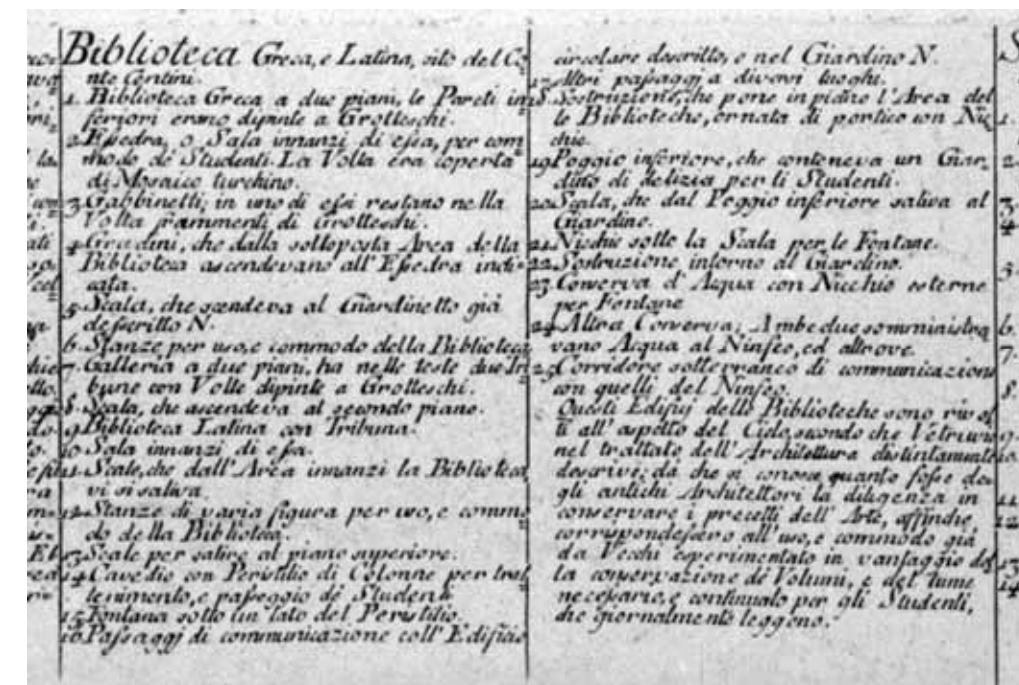 Biblioteca Greca, e Latina, sito del Co=
nte Centini.
1. Biblioteca Greca a due piani, le Pareti in=
feriori erano dipinte a Grotteschi.
2. Essedra, o Sala innanzi di essa, per com=
modo de Studenti. La Volta era coperta
di Mosaico turchino.
3. Gabbinetti; in uno di essi restano nella
Volta frammenti di Grotteschi.
4. Gradini, che dalla sottoposta Area della
Biblioteca ascendevano all' Essedra indi=
cata.
5. Scala, che scendeva al Giardinetto già
descritto N.
6. Stanze per uso, e commodo della Biblioteca
7. Galleria a due piani, ha nelle teste due Tri=
bune con Volte dipinte a Grotteschi.
8. Scala, che ascendeva al secondo piano.
9. Biblioteca Latina con Tribuna.
10. Sala innanzi di essa.
11. Scale, che dall' Area innanzi la Biblioteca
vi si saliva.
12. Stanze di varia figura per uso, e commo=
do della Biblioteca.
13. Scale per salire al piano superiore.
14. Cavedio con Peristilio di Colonne per trat=
tenimento, e passeggio de Studenti
15. Fontana sotto un lato del Peristilio.
16. Passaggj di communicazione coll' Edificio
circolare descritto, e nel Giardino N.
17. Altri passaggj a diversi luoghi.
18. Sostruzione, che pone in piano l'Area del=
le Biblioteche, ornata di portico con Nic=
chie
19. Poggio inferiore, che conteneva un Giar=
dino di delizia per li Studenti.
20. Scala, che dal Poggio inferiore saliva al
Giardino.
21. Nicchie sotto la Scala per le Fontane.
22. Sostruzione intorno al Giardino.
23. Conserva d' Acqua con Nicchie esterne
per Fontane
24. Altra Conserva; Ambedue somministra=
vano Acqua al Ninfeo, ed altrove.
25. Corridore sotterraneo di communicazione
con quelli del Ninfeo.
Questi Edifizj delle Biblioteche sono rivol=
ti all' aspetto del Cielo, secondo che Vetruvio
nel trattato dell' Architettura distintamente
descrive; da che si conosce quanto fosse de=
gli antichi Architettori la diligenza in
conservare i precetti dell' Arte, affinche
corrispondessero all' uso, e commodo già
da Vecchi esperimentato in vantaggio del=
la conservazione de Volumi, e del lume
necessario, e continuato per gli Studenti,
che giornalmente leggono.